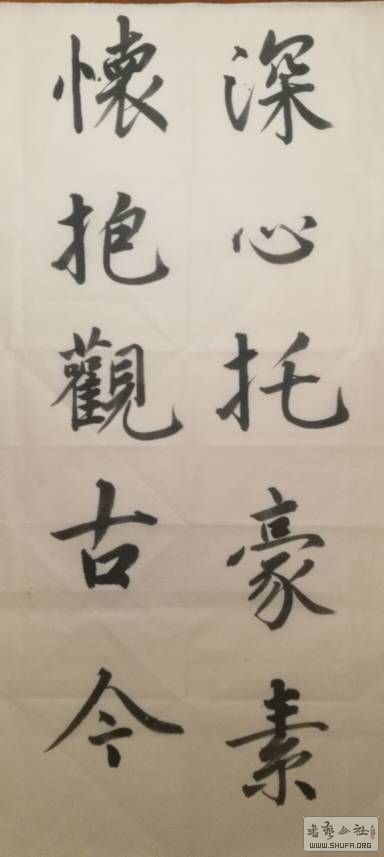 深心托豪素
懷抱觀古今
書藝公社
WWW.SHUFA.ORG